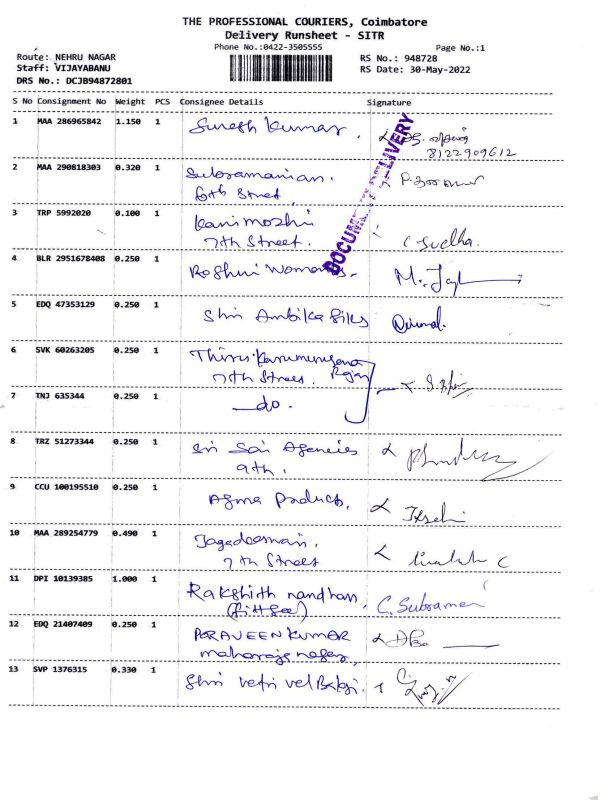 THE PROFESSIONAL COURIERS, Coimbatore
Delivery Runsheet - SITR
Phone No.:0422-3505555
Page No.:1
Route: NEHRU NAGAR
Staff: VIJAYABANU
DRS No.: DCJB94872801
RS No.: 948728
RS Date: 30-May-2022
S No Consignment No Weight PCS Consignee Details Signature
1 MAA 286965842 1.150 1 Suresh Kumar.
8122909612
DOCUMENT DELIVERY
2 MAA 290818303 0.320 1 Subramanian.
6th Street.
3 TRP 5992020 0.100 1 Kanimozhi
7th Street. C Sudha.
4 BLR 2951678408 0.250 1 Roshni Womans.
5 EDQ 47353129 0.250 1 Shri Ambika Silks Nirmal.
6 SVK 60263205 0.250 1
7th Street.
7 TNJ 635344 0.250 1 do.
8 TRZ 51273344 0.250 1 Sri Sai Agencies
9th.
9 CCU 100195510 0.250 1 Agma Products.
10 MAA 289254779 0.490 1 Jagadeesan.
7th Street
11 DPI 10139385 1.000 1 Rakshith nandhan,
C. Subramani
12 EDQ 21407409 0.250 1 PRAVEEN KUMAR
maharaja nagar,
13 SVP 1376315 0.330 1 Shri vetri vel Balaji.